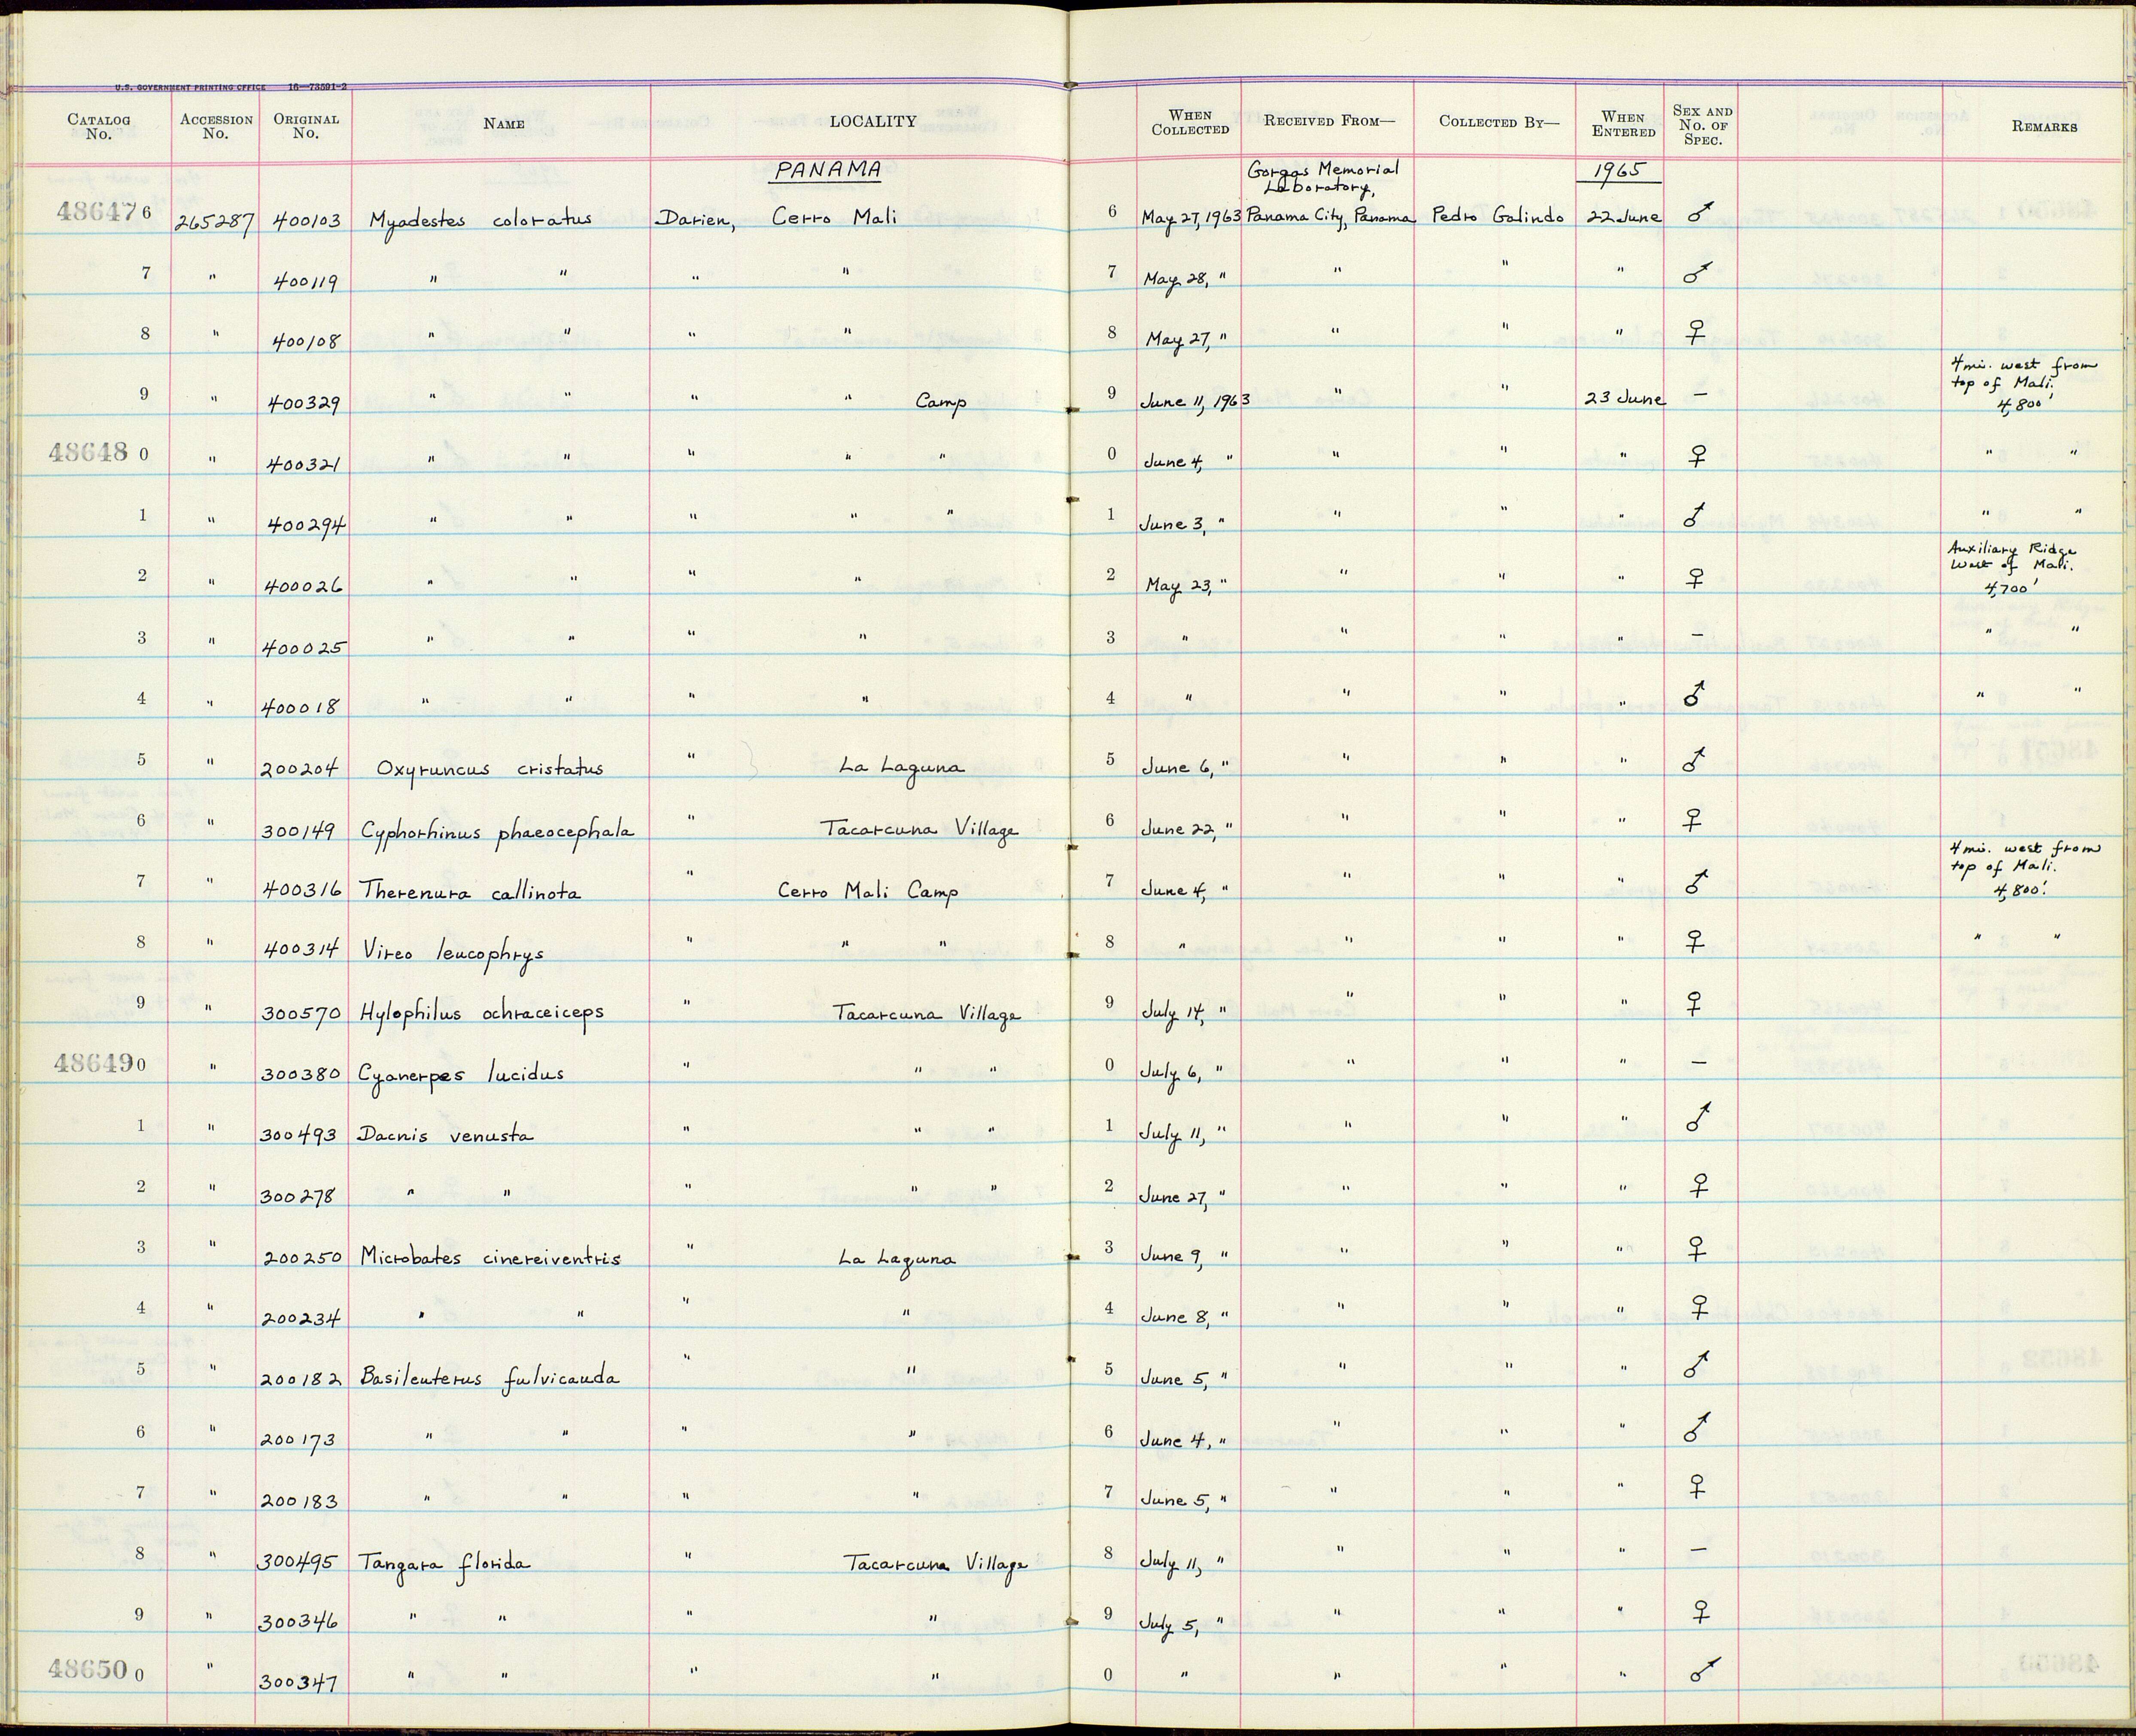 U.S. GOVERNMENT PRINTING OFFICE 16—73591-2
CATALOG No. ACCESSION No. ORIGINAL No. NAME LOCALITY WHEN COLLECTED RECEIVED FROM— COLLECTED BY— WHEN ENTERED SEX AND No. OF SPEC. REMARKS
PANAMA Gorgas Memorial Laboratory, 1965
486476 265287 400103 Myadestes coloratus Darien, Cerro Mali 6 May 27, 1963 Panama City, Panama Pedro Galindo 22 June ♂
7 " 400119 " " " " 7 May 28, " " " " ♂
8 " 400108 " " " " 8 May 27, " " " " ♀
9 " 400329 " " " " Camp 9 June 11, 1963 " " 23 June — 4 mi. west from top of Mali. 4,800'
486480 " 400321 " " " " " 0 June 4, " " " " ♀ " "
1 " 400294 " " " " " 1 June 3, " " " " ♂ " "
2 " 400026 " " " " 2 May 23, " " " " ♀ Auxiliary Ridge West of Mali. 4,700'
3 " 400025 " " " " 3 " " " " — " "
4 " 400018 " " " " 4 " " " " ♂ " "
5 " 200204 Oxyruncus cristatus " La Laguna 5 June 6, " " " " ♂
6 " 300149 Cyphorhinus phaeocephala " Tacarcuna Village 6 June 22, " " " " ♀
7 " 400316 Therenura callinota " Cerro Mali Camp 7 June 4, " " " " ♂ 4 mi. west from top of Mali. 4,800'.
8 " 400314 Vireo leucophrys " " " 8 " " " " ♀ " "
9 " 300570 Hylophilus ochraceiceps " Tacarcuna Village 9 July 14, " " " " ♀
486490 " 300380 Cyanerpes lucidus " " " 0 July 6, " " " " —
1 " 300493 Dacnis venusta " " " 1 July 11, " " " " ♂
2 " 300278 " " " " " 2 June 27, " " " " ♀
3 " 200250 Microbates cinereiventris " La Laguna 3 June 9, " " " " ♀
4 " 200234 " " " " 4 June 8, " " " " ♀
5 " 200182 Basileuterus fulvicauda " " 5 June 5, " " " " ♂
6 " 200173 " " " " 6 June 4, " " " " ♂
7 " 200183 " " " " 7 June 5, " " " " ♀
8 " 300495 Tangara florida " Tacarcuna Village 8 July 11, " " " " —
9 " 300346 " " " " 9 July 5, " " " " ♀
486500 " 300347 " " " " 0 " " " " ♂